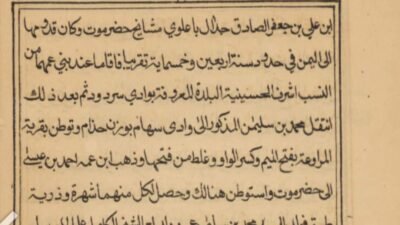 ابن علي بن جعفر الصادق جد ال باعلوي مشايخ حضرموت وكان قدومها
الى اليمن في حدود سنة اربعين وخمسماية تقريبا فاقاما عند بني عمهما من
النسب اشرف الحسينية البلدة المعروفة بوادي سردود ثم بعد ذلك
انتقل محمد بن سليمن المذكور الى وادي سهام بورزن حذام وتوطن بقرية
المراوعة بفتح الميم وكسر الواو وغلط من فتحها وذهب ابن عمه احمد بن عيسى
الى حضرموت واستوطن هنالك وحصل لكل منهما شهرة وذرية